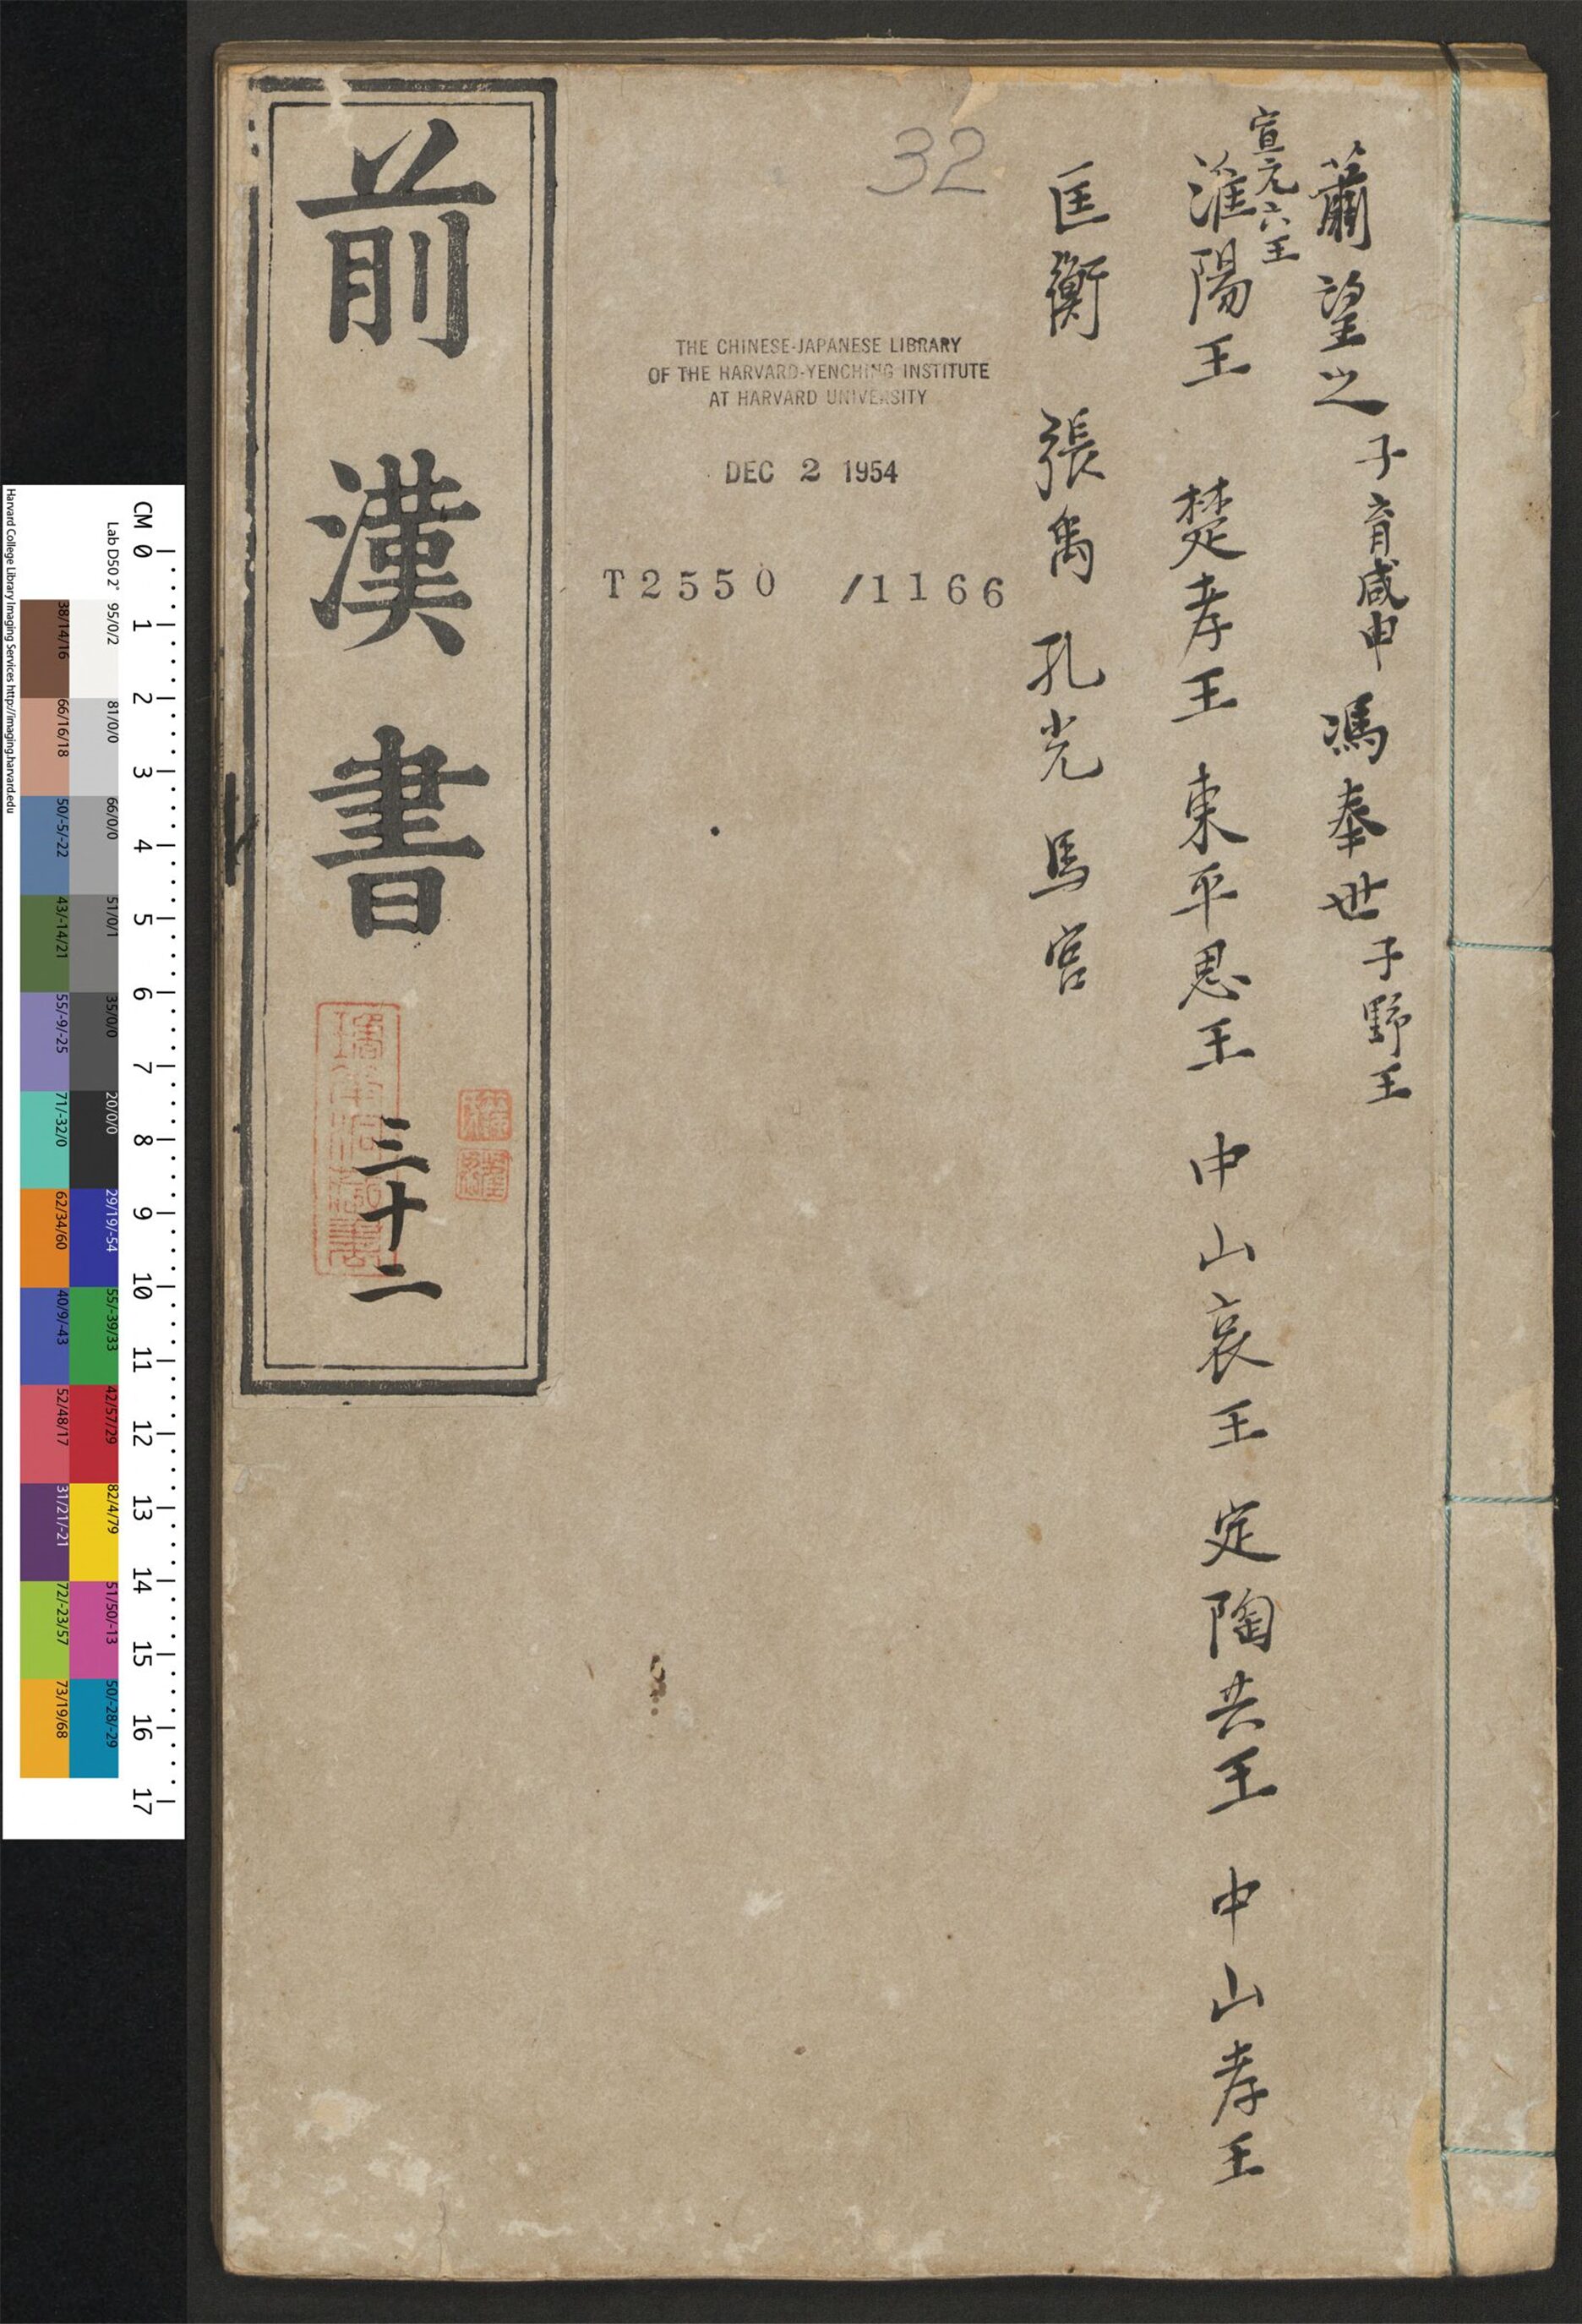 蕭望之 子育咸由 馮奉世 子野王
宣元六王
淮陽王 楚孝王 東平思王 中山哀王 定陶共王 中山孝王
匡衡 張禹 孔光 馬宮
32
THE CHINESE-JAPANESE LIBRARY
OF THE HARVARD-YENCHING INSTITUTE
AT HARVARD UNIVERSITY
DEC 2 1954
T2550 /1166
前漢書
三十二
CM 0 1 2 3 4 5 6 7 8 9 10 11 12 13 14 15 16 17
Lab D50 2° 95/0/2 81/0/0 66/0/0 51/0/1 35/0/0 20/0/0 29/19/-54 55/-39/33 42/57/29 82/4/79 51/50/-13 50/-28/-29
38/14/16 66/16/18 50/-5/-22 43/-14/21 55/-9/-25 71/-32/0 62/34/60 40/9/-43 52/48/17 31/21/-21 72/-23/57 73/19/68
Harvard College Library Imaging Services http://imaging.harvard.edu